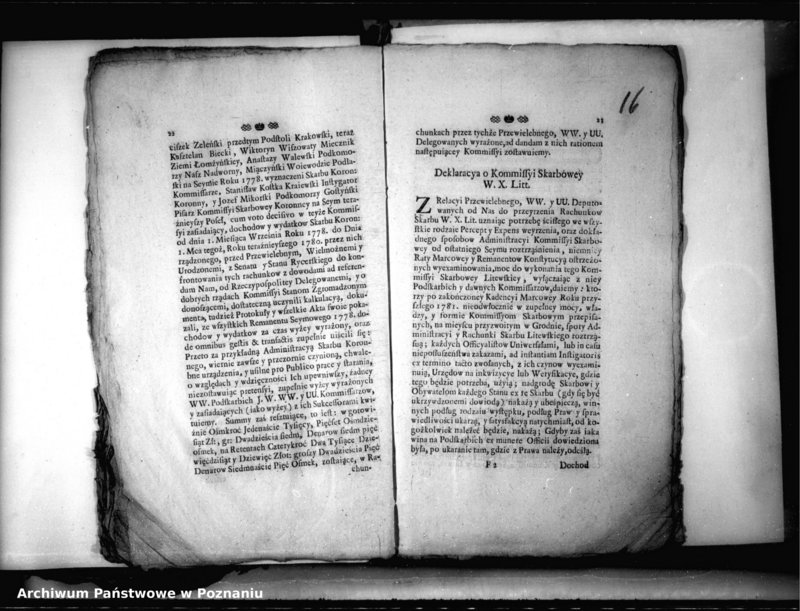 22
ciszek Zeleński przedtym Podstoli Krakowski, teraz
Kasztelan Biecki, Wiktoryn Wiszowaty Miecznik
Ziemi Łomżyńskiey, Anastazy Walewski Podkomo-
rzy Nasz Nadworny, Miączyński Woiewodzic Podla-
ski na Seymie Roku 1778. wyznaczeni Skarbu Koron:
Kommissarze, Stanisław Kostka Kraiewski Instygator
Koronny, y Jozef Mikorski Podkomorzy Gostyński
Pisarz Kommissyi Skarbowey Koronney na Seym tera-
źnieyszy Poseł, cum voto decisivo w teyże Kommis-
syi zasiadaiący, dochodow y wydatkow Skarbu Koron:
od dnia 1. Miesiąca Września Roku 1778. do Dnia
1. Mca tegoż, Roku teraźnieyszego 1780. przez nich
rządzonego, przed Przewielebnym, Wielmożnemi y
Urodzonemi, z Senatu y Stanu Rycerskiego do kon-
frontowania tych rachunkow z dowodami ad referen-
dum Nam, od Rzeczypospolitey Delegowanemi, y o
dobrych rządach Kommissyi Stanom Zgromadzonym
donoszącemi, dostateczną uczynili kalkulacyą, doku-
menta, tudzież Protokuły y wszelkie Akta swoie poka-
zali, ze wszystkich Remanentu Seymowego 1778. do-
chodow y wydatkow za czas wyżey wyrażony, oraz
de omnibus gestis & transactis zupełnie uiścili się:
Przeto za przykładną Administracyą Skarbu Koron-
nego, wiernie zawsze y przezornie czynioną, chwale-
bne urządzenia, y usilne pro Publico prace y starania,
o względach y wdzięczności Ich upewniwszy, żadney
niezostawuiąc pretensyi, zupełnie wyżey wyrażonych
WW. Podskarbich J. W. WW. y UU. Kommissarzow,
y zasiadaiących (iako wyżey) z ich Sukcessorami kwi-
tuiemy. Summy zaś resztuiące, to iest: w gotowi-
źnie Ośmkroć Jedenaście Tysięcy, Pięćset Ośmdzie-
siąt Zł: gr: Dwadzieścia siedm, Denarow siedm pięć
osmek, na Retentach Caterykroć Dwa Tysiące Dzie-
więćdziesiąt y Dziewięć Złot: groszy Dwadzieścia Pięć
Denarow Siedmnaście Pięć Osmek, zostaiące, w Ra-
chun-
23
16
chunkach przez tychże Przewielebnego, WW. y UU.
Delegowanych wyrażone, ad dandam z nich rationem
następuiącey Kommissyi zostawuiemy.
Deklaracya o Kommissyi Skarbowey
W. X. Litt.
Z Relacyi Przewielebnego, WW. y UU. Deputo-
wanych od Nas do przeyrzenia Rachunkow
Skarbu W. X. Lit. uznaiąc potrzebę ścisłego we wszy-
stkie rodzaie Percept y Expens weyrzenia, oraz dokła-
dnego sposobow Administracyi Kommissyi Skarbo-
wey od ostatniego Seymu roztrząśnienia, niemniey
Raty Marcowey y Remanentow Konstytucyą ostrzeżo-
nych wyexaminowania, moc do wykonania tego Kom-
missyi Skarbowey Litewskiey, wyłączaiąc z niey
Podskarbich y dawnych Kommissarzow, daiemy: kto-
rzy po zakończoney Kadencyi Marcowey Roku przy-
szłego 1781. nieodwłocznie w zupełney mocy, wła-
dzy, y formie Kommissyom Skarbowym przepisa-
nych, na mieyscu przyzwoitym w Grodnie, spory Ad-
ministracyi y Rachunki Skarbu Litewskiego roztrzą-
sną; każdych Officyalistow Uniwersałami, lub in casu
nieposłuszeństwa zakazami, ad instantiam Instigatoris
ex termino tacto zwołanych, z ich czynow wyexami-
nuią, Urzędow na inkwizycye lub Weryfikacye, gdzie
tego będzie potrzeba, użyią; nadgrodę Skarbowi y
Obywatelom każdego Stanu ex re Skarbu (gdy się być
ukrzywdzonemi dowiodą) nakażą y ubezpieczą, win-
nych podług rodzaiu występku, podług Praw y spra-
wiedliwości ukarzą, y satysfakcyą natychmiast, od ko-
gożkolwiek należeć będzie, nakażą; Gdyby zaś iaka
wina na Podskarbich ex munere Officii dowiedziona
była, po ukaranie tam, gdzie z Prawa należy, odeślą.
F 2
Dochod
Archiwum Państwowe w Poznaniu